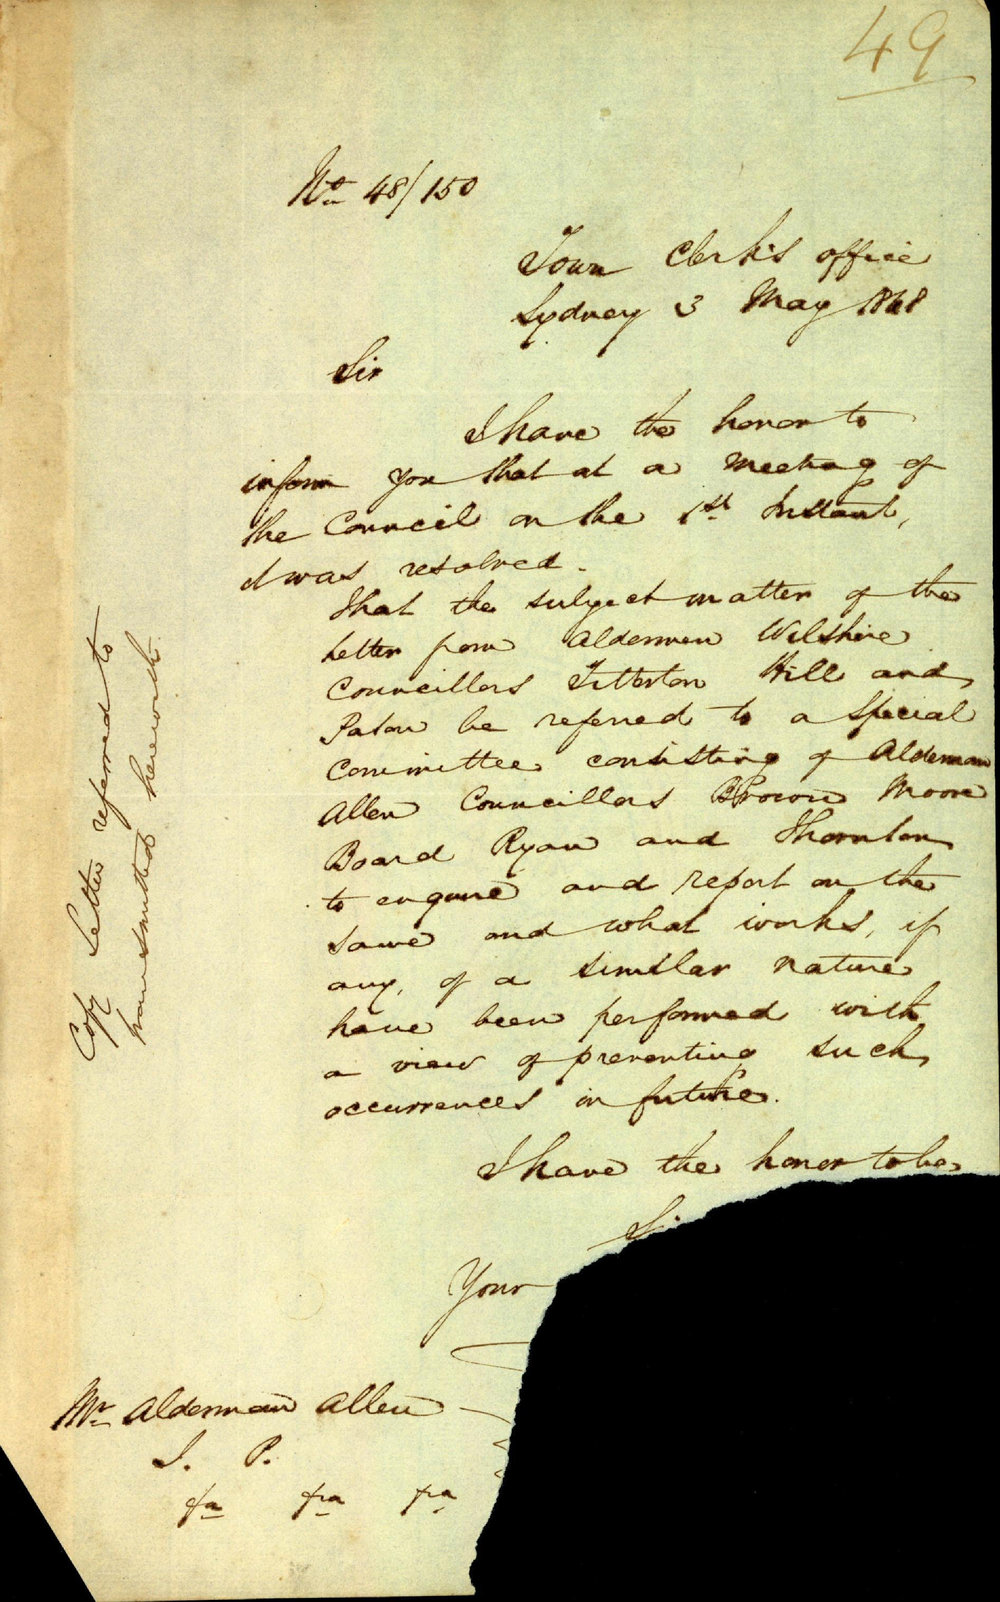 49
No 48/150
Town Clerk's office
Sydney 3 May 1848
Sir
I have the honor to
inform you that at a meeting of
the Council on the 1st Instant,
it was resolved.
That the subject matter of the
letter from Aldermen Wilshire
Councillors Titterton Hill and
Paton be referred to a Special
Committee consisting of Alderman
Allen Councillors Brown Moore
Board Ryan and Thornton
to enquire and report on the
same and what works, if
any, of a similar nature
have been performed with
a view of preventing such
occurrences in future.
I have the honor to be
Si
Your
Mr Alderman Allen
J. P.
Copy letter referred to
transmitted herewith